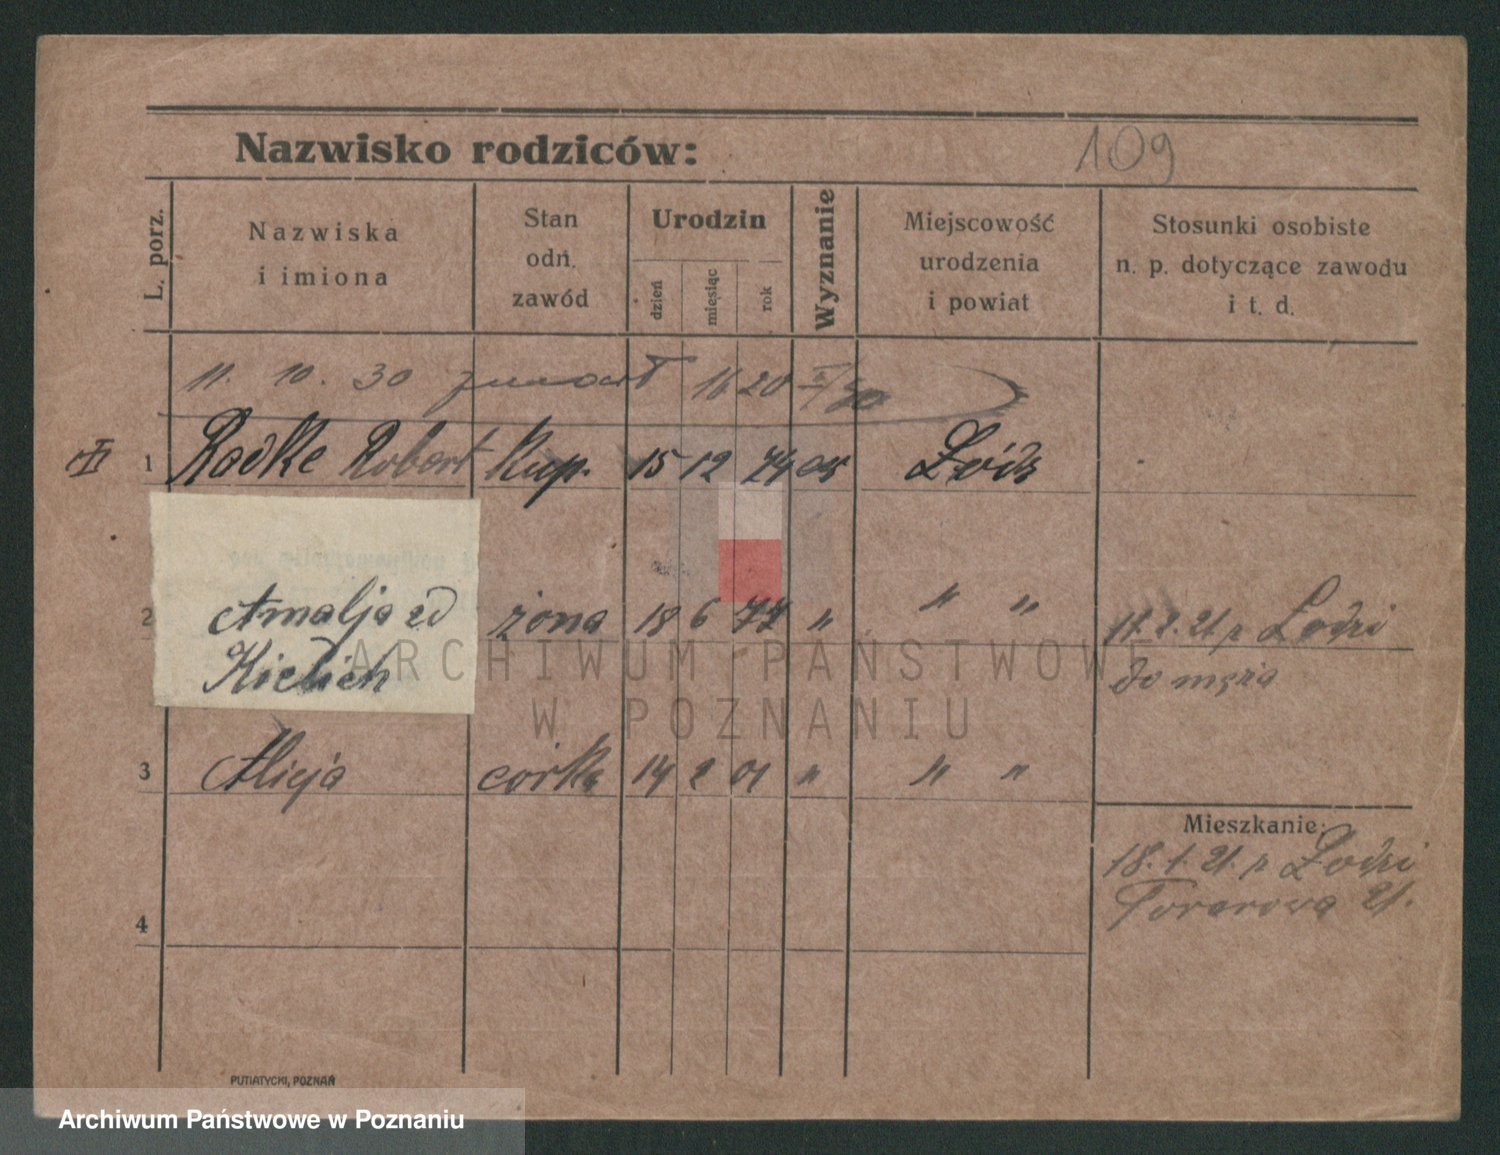 Nazwisko rodziców:
109
L. porz.
Nazwiska
i imiona
Stan
odn.
zawód
Urodzin
dzień
miesiąc
rok
Wyznanie
Miejscowość
urodzenia
i powiat
Stosunki osobiste
n. p. dotyczące zawodu
i t. d.
11. 10. 30
1 Radke Robert Kup. 15 12 74 Łódź
2 Amalja zd żona 18 6 77 " " " Łodzi
Kielich do męża
3 Alicja córka 14 2 01 " " "
Mieszkanie:
18. 1. 21. z Łodzi
21.
4
ARCHIWUM PAŃSTWOWE
W POZNANIU
PUTIATYCKI, POZNAŃ
Archiwum Państwowe w Poznaniu